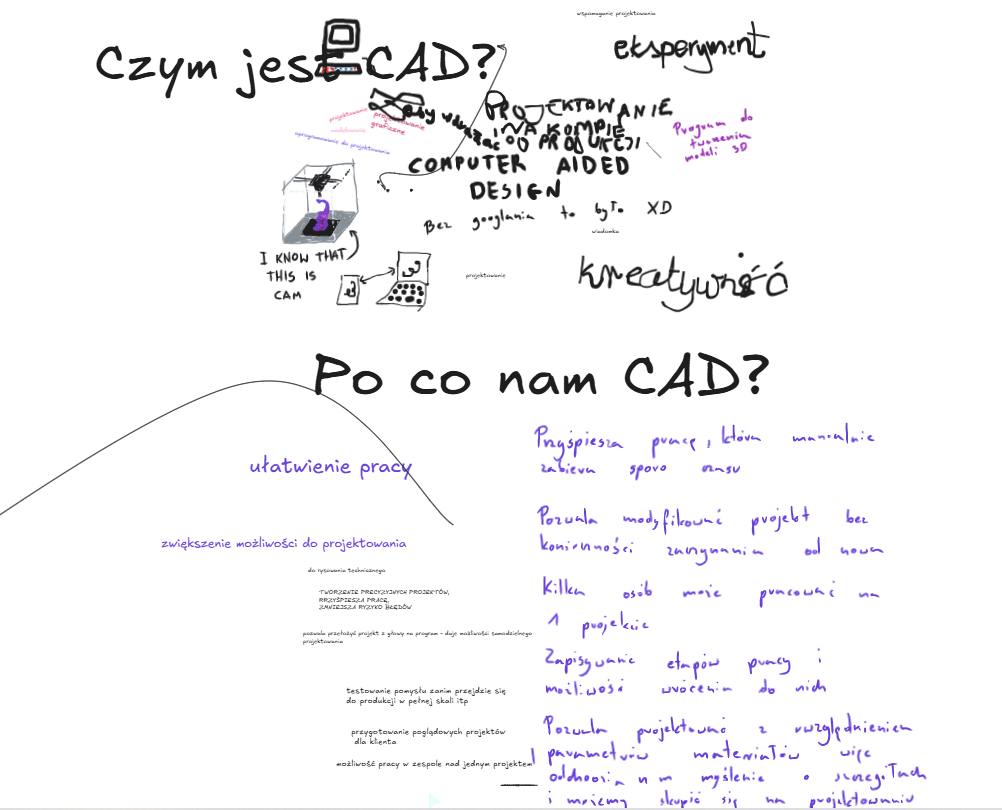 wspomaganie projektowania
eksperyment
Czym jest CAD?
PROJEKTOWANIE
NA KOMPIE
projektowanie
projektowanie
graficzne
modelowanie
oprogramowanie do projektowania
aby wdrażać do PRODUKCJI
Program do
tworzenia
modeli 3D
COMPUTER AIDED
DESIGN
Bez googlania to było XD
wiadomka
I KNOW THAT
THIS IS
CAM
projektowanie
kreatywność
Po co nam CAD?
ułatwienie pracy
zwiększenie możliwości do projektowania
do rysowania technicznego
TWORZENIE PRECYZYJNYCH PROJEKTÓW,
PRZYŚPIESZA PRACĘ,
ZMNIEJSZA RYZYKO BŁĘDÓW
pozwala przełożyć projekt z głowy na program - daje możliwości samodzielnego
projektowania
testowanie pomysłu zanim przejdzie się
do produkcji w pełnej skali itp
przygotowanie poglądowych projektów
dla klienta
możliwość pracy w zespole nad jednym projektem
Przyśpiesza pracę, która manualnie
zabiera sporo czasu
Pozwala modyfikować projekt bez
konieczności zaczynania od nowa
Kilka osób może pracować na
1 projekcie
Zapisywanie etapów pracy i
możliwość wrócenia do nich
Pozwala projektować z uwzględnieniem
parametrów materiałów więc
odchodzi nam myślenie o szczegółach
i możemy skupić się na projektowaniu